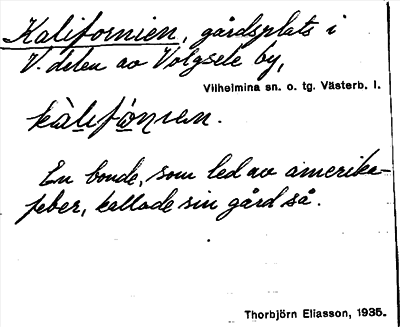 Kalifornien, gårdsplats i
V. delen av Volgsele by,
Vilhelmina sn. o. tg. Västerb. l.
kàlifónıen.
En bonde, som led av amerika-
feber, kallade sin gård så.
Thorbjörn Eliasson, 1935.